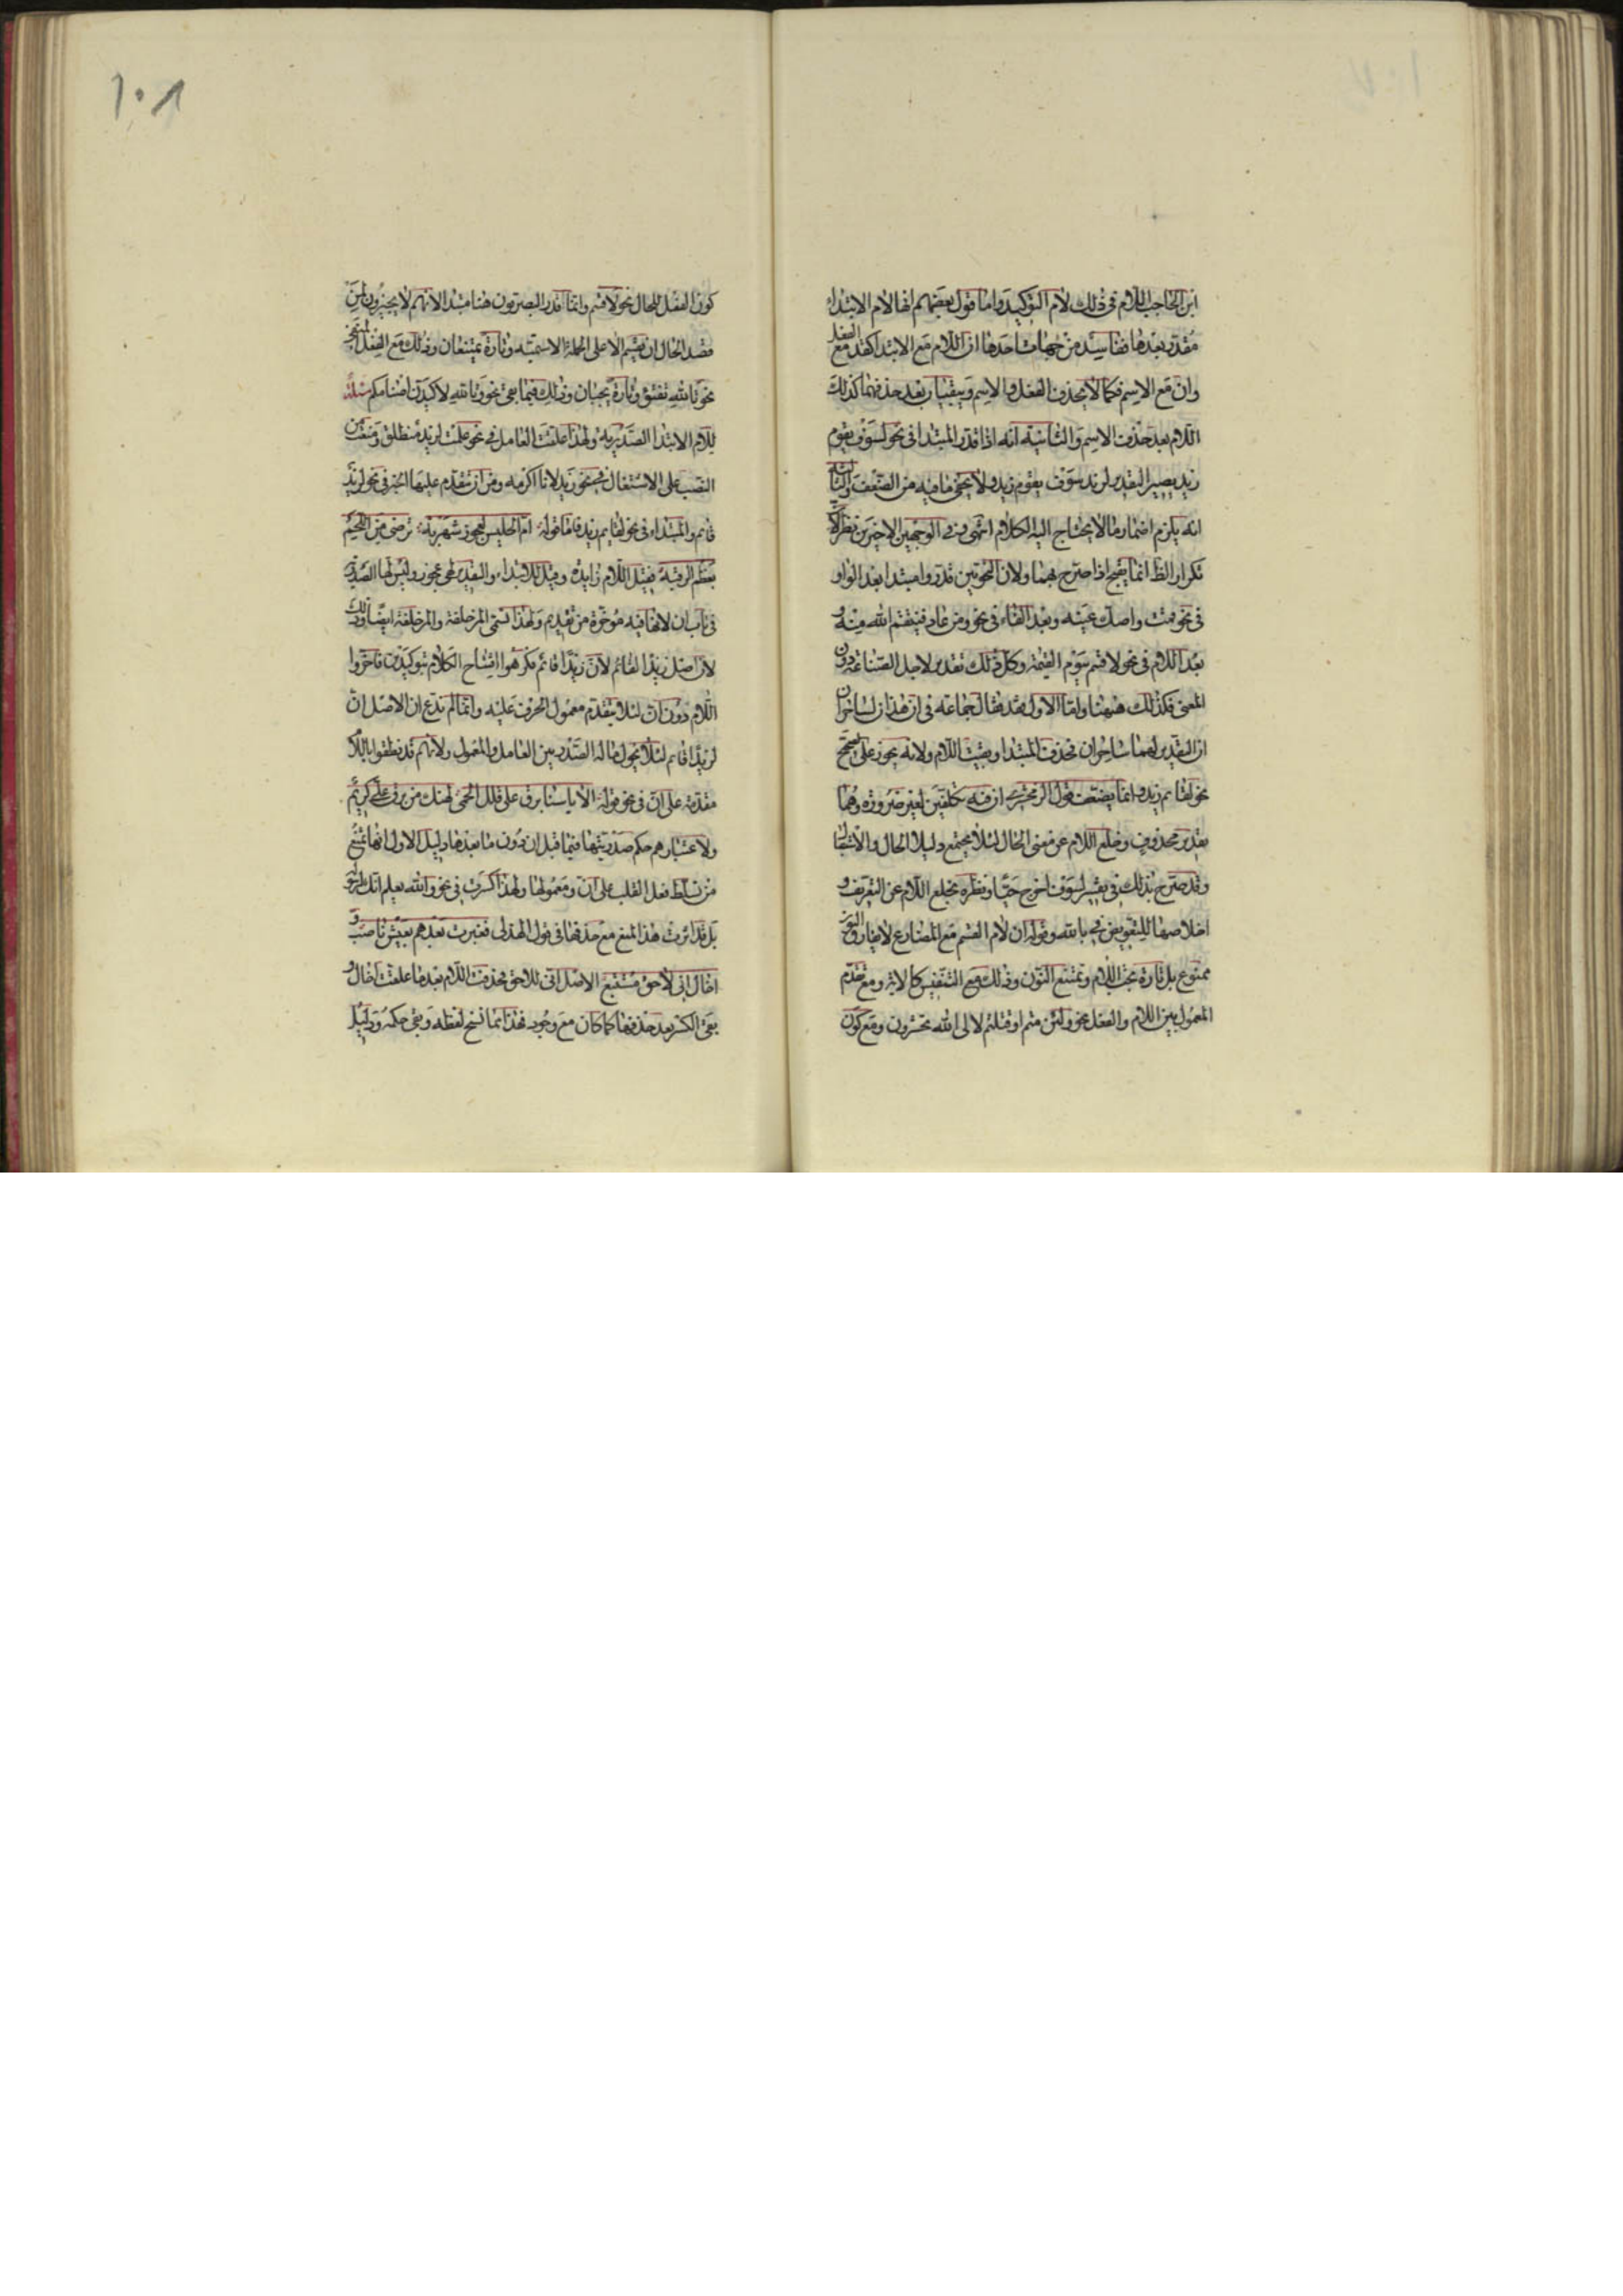 ابن الحاجب اللام في ذلك لام التوكيد واما قول بعضهم انها لام الابتداء
مقدر بعدها ففاسد من جهات احدها ان اللام مع الابتدا كقد مع الفعل
وان مع الاسم فكما لا يحذف الفعل والاسم ويبقيان بعد حذفهما كذلك
اللام بعد حذف الاسم والثانية انه اذا قدر المبتدا في نحو لسوف يقوم
زيد يصير التقدير لزيد سوف يقوم زيد ولا يخفى ما فيه من الضعف والثالثة
انه يلزم اضمار ما لا يحتاج اليه الكلام انتهى وفي الوجهين الاخيرين نظر لان
تكرار الظ انما يقبح اذا صرح بهما ولان النحويين قدروا مبتدا بعد الواو
في نحو قمت واصك عينه وبعد الفاء في نحو ومن عاد فينتقم الله منه و
بعد اللام في نحو لا قسم بيوم القيمة وكل ذلك تقدير لاجل الصناعة دون
المعنى فكذلك ههنا واما الاول فقد قال جماعة في ان هذان لساحران
ان التقدير لهما ساحران فحذف المبتدا وبقيت اللام ولانه يجوز على الصحيح
نحو لقائم زيد وانما يضعف قول الزمخشري ان فيه تكلفين لغير ضرورة وهما
تقدير محذوف وخلع اللام عن معنى الحال لئلا يجتمع دليلا الحال والاستقبال
وقد صرح بذلك في تفسير لسوف اخرج حيا ونظره بخلع اللام عن التعريف و
اخلاصها للتعويض في يا لله وقوله ان لام القسم مع المضارع لا يفارق النون
ممنوع بل تارة تجب اللام وتمتنع النون وذلك مع التنفيس كالاية ومع تقدم
المعمول بين اللام والفعل نحو ولئن متم او قتلتم لا لى الله تحشرون ومع كون
١٠٨
كون الفعل للحال نحو لا قسم وانما قدر البصريون هنا مبتدا لانهم لا يجيزون لمن
قصد الحال ان يقسم الا على الجملة الاسمية وتارة يمتنعان وذلك مع الفعل المنفي
نحو تالله تفتؤ وتارة يجبان وذلك فيما بقى نحو وتالله لاكيدن اصنامكم مسئلة
للام الابتدا الصدرية ولهذا علقت العامل في نحو علمت لزيد منطلق ومنعت من
النصب على الاشتغال في نحو زيد لانا اكرمه ومن ان يتقدم عليها الخبر في نحو لزيد
قائم والمبتداء في نحو لقائم زيد فاما قوله ام الحليس لعجوز شهربه ترضى من اللحم
بعظم الرقبه فقيل اللام زايدة وقيل للابتداء والتقدير لهي عجوز وليس لها الصدرية
في باب ان لانها فيه مؤخرة من تقديم ولهذا تسمى المزحلقة والمزحلفة ايضا وذلك
لان اصل ان زيدا لقائم لان زيدا قائم فكرهوا افتتاح الكلام بتوكيدين فاخروا
اللام دون ان لئلا يتقدم معمول الحرف عليه وانما لم ندع ان الاصل ان
لزيدا قائم لئلا يحول ما له الصدر بين العامل والمعمول ولانهم قد نطقوا باللام
مقدمة على ان في نحو قوله الا يا سنا برق على قلل الحمى لهنك من برق على كريم
ولاعتبارهم حكم صدريتها فيما قبل ان دون ما بعدها دليل الاول انها تمنع
من تسلط فعل القلب على ان ومعمولها ولهذا كسرت في نحو والله يعلم انك لرسوله
بل قد اثرت هذا المنع مع حذفها في قول الهذلى فغبرت بعدهم بعيش ناصب و
اخال انى لاحق مستتبع الاصل انى للاحق فحذفت اللام بعد ما علقت اخال و
بقى الكسر بعد حذفها كما كان مع وجود فهذا مما نسخ لفظه وبقى حكمه ودليل